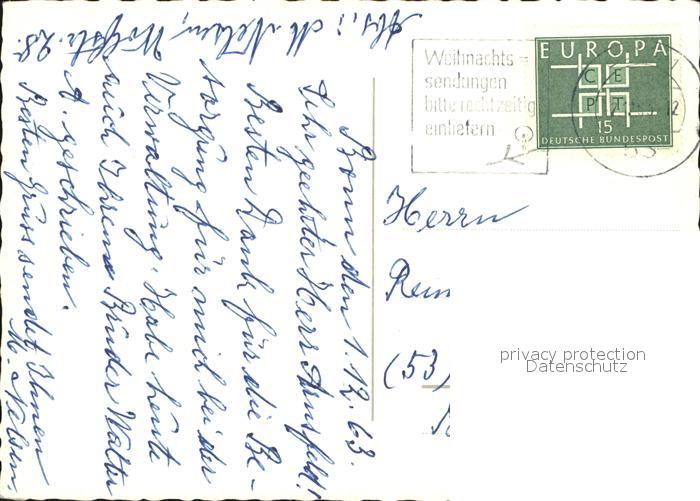 Abs.: M. Nelsen, Wolfstr. 28.
Bonn den 1.12.63.
Sehr geehrter Herr Arnsfeld!
Besten Dank für die Be-
sorgung für mich bei der
Verwaltung. Habe heute
auch Ihrem Bruder Walter
A. geschrieben.
Besten Gruss sendet Ihnen
M. Nelsen.
Weihnachts=
sendungen
bitte rechtzeitig
einliefern
EUROPA
C E
P T
15
DEUTSCHE BUNDESPOST
53
Herrn
(53)
privacy protection
Datenschutz